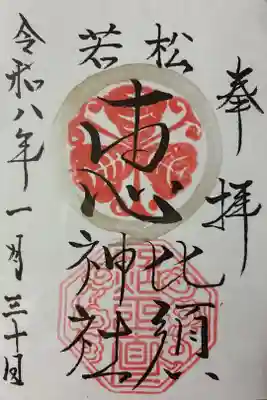 奉拝
若松
恵
比須
神社
令和八年一月三十日